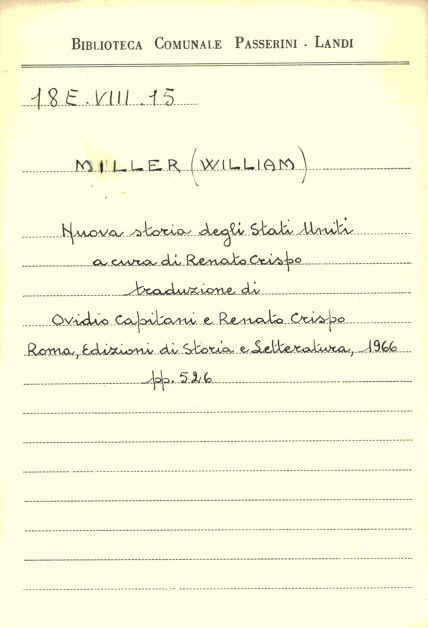 BIBLIOTECA COMUNALE PASSERINI - LANDI
18E.VIII.15
MILLER (WILLIAM)
Nuova storia degli Stati Uniti
a cura di Renato Crispo
traduzione di
Ovidio Capitani e Renato Crispo
Roma, Edizioni di Storia e Letteratura, 1966
pp. 526